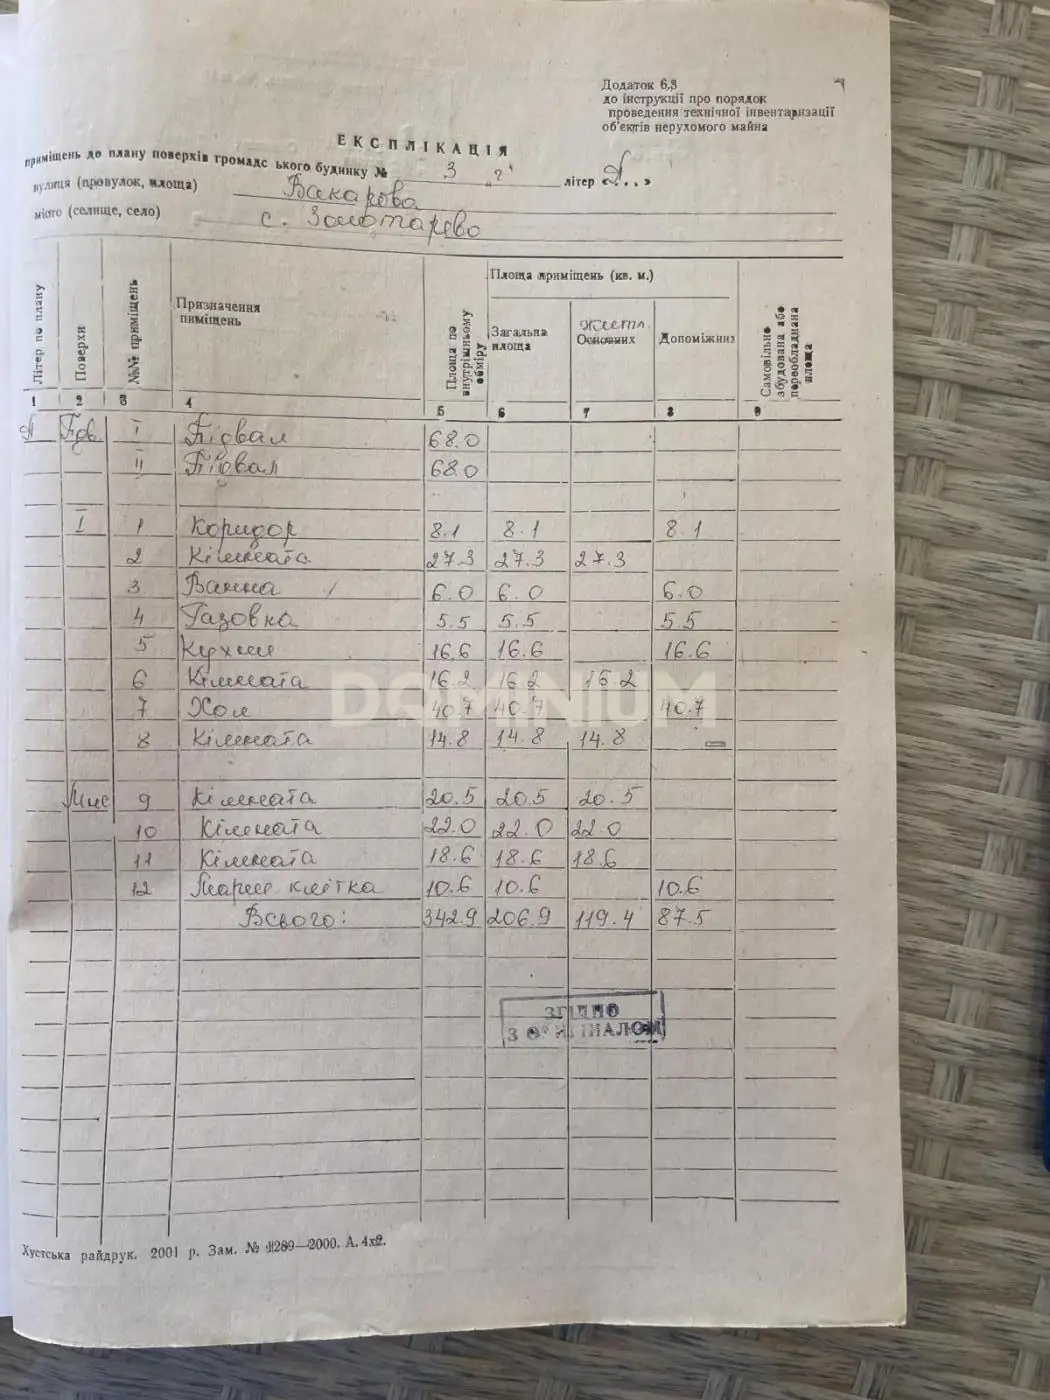 Додаток 6.3
до інструкції про порядок
проведення технічної інвентаризації
об'єктів нерухомого майна
ЕКСПЛІКАЦІЯ
приміщень до плану поверхів громадс ького будинку № 3 „г" літер «А»
вулиця (провулок, площа) Вакарова
місто (селище, село) с. Золотарево
Літер по плану
Поверхи
№№ приміщень
Призначення пиміщень
Площа по внутрішньому обміру
Площа приміщень (кв. м.)
Загальна площа
Житл.
Основних
Допоміжних
Самовільно збудована або переобладнана площа
1 2 3 4 5 6 7 8 9
А Пдв I Підвал 68.0
II Підвал 68.0
I 1 Коридор 8.1 8.1 8.1
2 Кімната 27.3 27.3 27.3
3 Ванна 6.0 6.0 6.0
4 Газовка 5.5 5.5 5.5
5 Кухня 16.6 16.6 16.6
6 Кімната 16.2 16.2 16.2
7 Хол 40.7 40.7 40.7
8 Кімната 14.8 14.8 14.8 –
Манс 9 Кімната 20.5 20.5 20.5
10 Кімната 22.0 22.0 22.0
11 Кімната 18.6 18.6 18.6
12 клітка 10.6 10.6 10.6
Всього: 342.9 206.9 119.4 87.5
DOMINIUM
ЗГІДНО
З ОРИГІНАЛОМ
Хустська райдрук. 2001 р. Зам. № 11289—2000. А. 4х2.